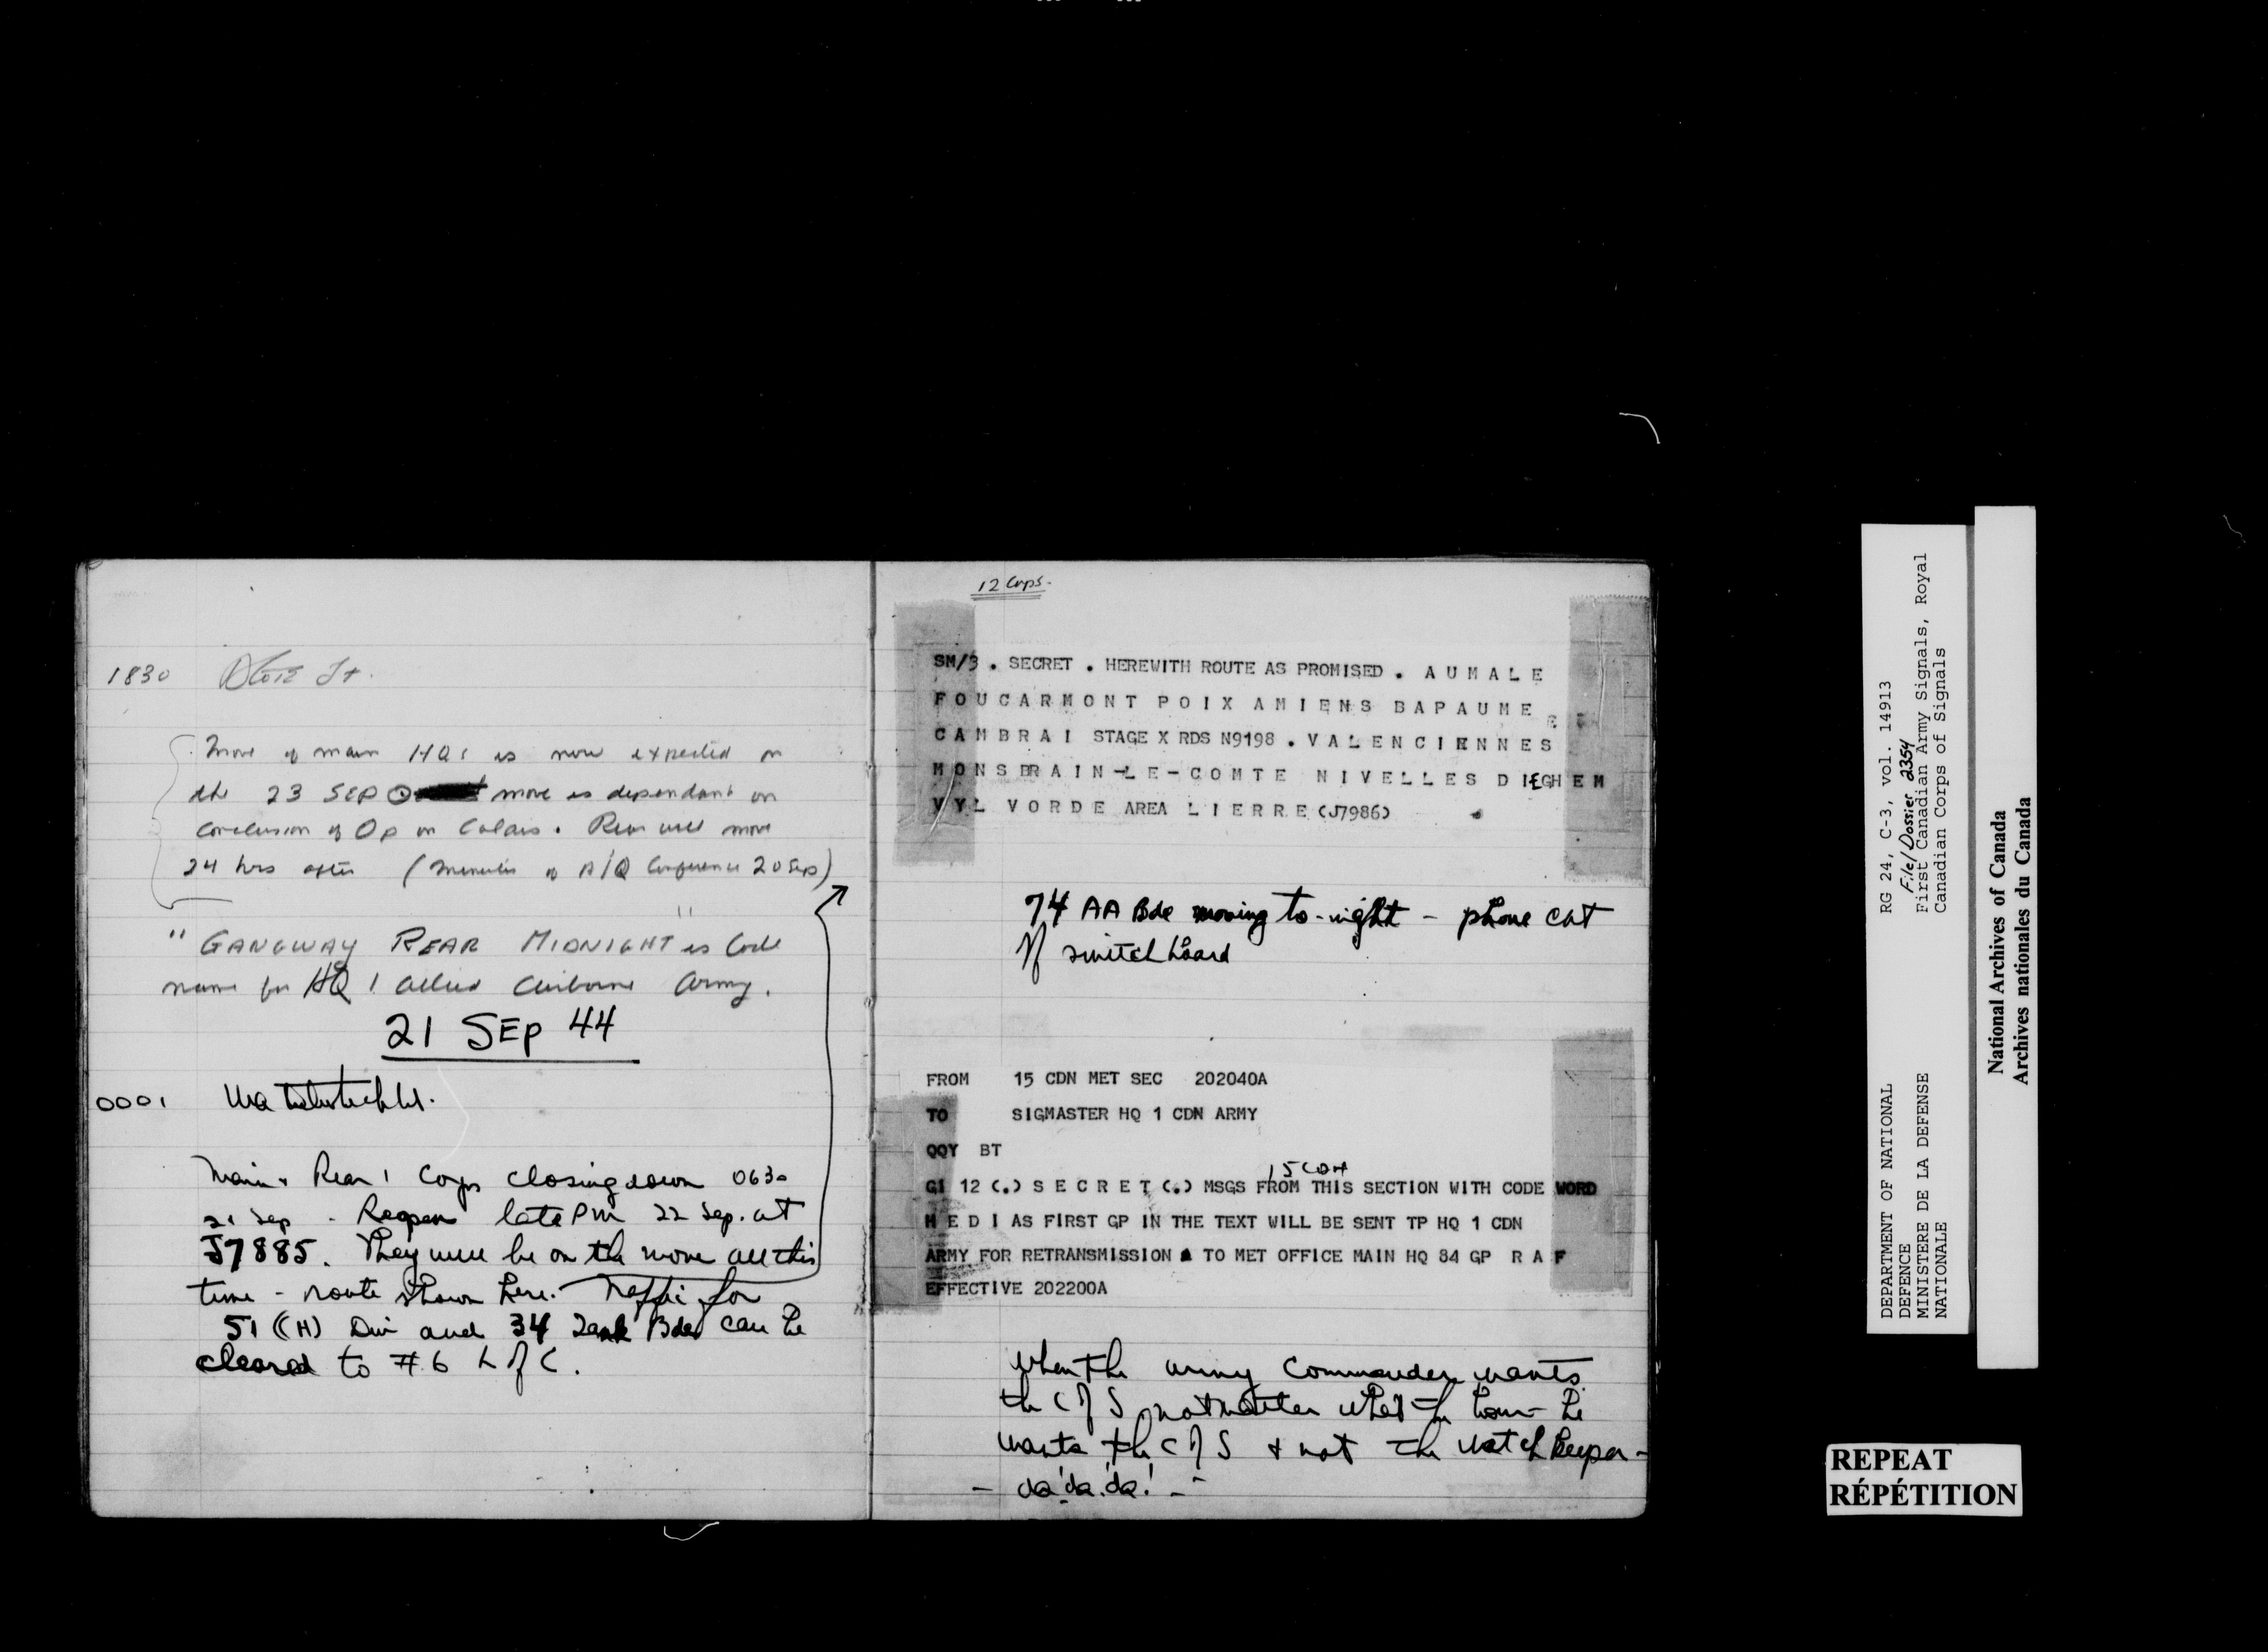 1830
Move of main HQ's is now expected on
the 23 SEP move is dependant on
Conclusion of Op on Calais. Rear will move
24 hrs after (Minutes of A/Q Conference 20 Sep)
"GANGWAY REAR MIDNIGHT" is Code
name for HQ 1 Allied Airborne Army.
21 SEP 44
0001
Main & Rear 1 Corps closing down 0630
21 Sep - Reopen late PM 22 Sep. at
J7885. They will be on the move all this
time - route shown here. Traffic for
51 (H) Div and 34 Tank Bde can be
cleared to #6 L of C.
12 Corps.
SM/3 . SECRET . HEREWITH ROUTE AS PROMISED . A U M A L E
F O U C A R M O N T P O I X A M I E N S B A P A U M E
C A M B R A I STAGE X RDS N9198 . V A L E N C I E N N E S
M O N S BRAIN-LE-COMTE N I V E L L E S D I E G H E M
V Y L V O R D E AREA L I E R R E (J7986)
74 AA Bde moving to-night - phone cut
off switchboard
FROM 15 CDN MET SEC 202040A
TO SIGMASTER HQ 1 CDN ARMY
QQY BT
15 CDN
GI 12 (.) S E C R E T (.) MSGS FROM THIS SECTION WITH CODE WORD
M E D I AS FIRST GP IN THE TEXT WILL BE SENT TP HQ 1 CDN
ARMY FOR RETRANSMISSION TO MET OFFICE MAIN HQ 84 GP R A F
EFFECTIVE 202200A
When the army Commander wants
the C of S no matter what the hour he
wants the C of S & not the watch keeper -
- da! da. da! -
DEPARTMENT OF NATIONAL
DEFENCE
MINISTERE DE LA DEFENSE
NATIONALE
RG 24, C-3, vol. 14913
File/Dossier 2354
First Canadian Army Signals, Royal
Canadian Corps of Signals
National Archives of Canada
Archives nationales du Canada
REPEAT
RÉPÉTITION